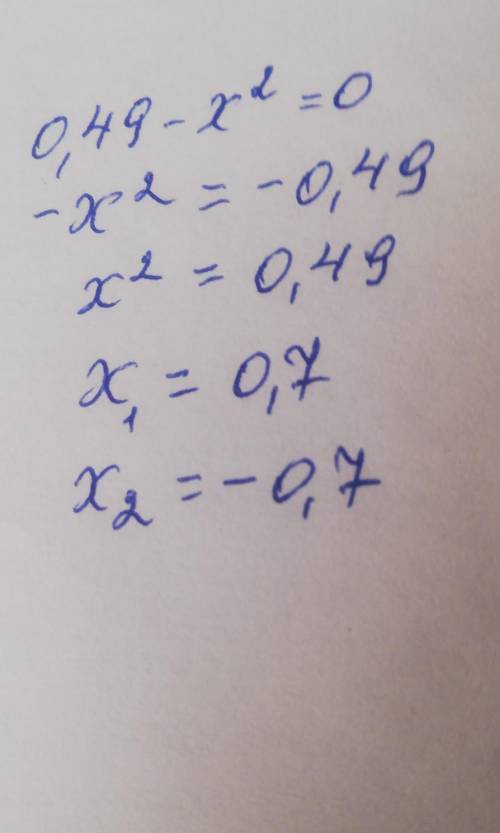 0,49 - x² = 0
-x² = -0,49
x² = 0,49
x₁ = 0,7
x₂ = -0,7